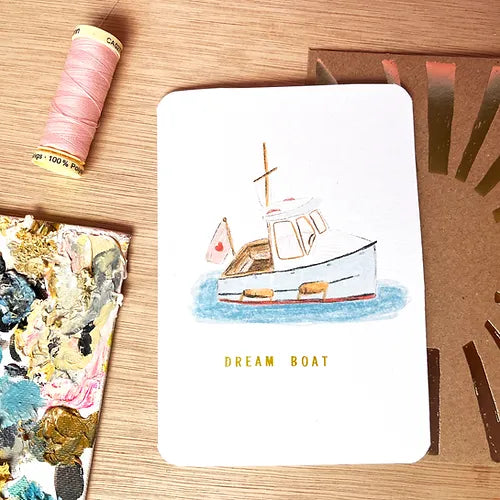 100% Po
DREAM BOAT